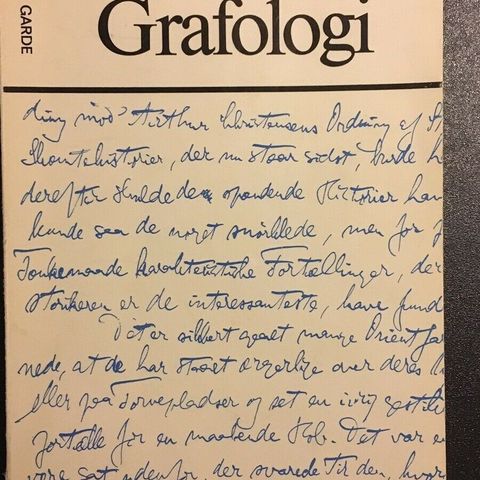 GARDE
Grafologi
ding mod Arthur Christensens Ordning af
der nu staar sidst, burde h
derefter skulde de spændende Historier han
kunde saa de noget snørklede, men for
Tankemaade karakteristiske Fortællinger, der
storikeren er de interessanteste, have fund
Det er sikkert gaaet mange Orientfar
nede, at de har staaet ærgerlige over deres
eller paa Torvepladser og set en ivrig gestik
fortælle for en maabende Hob. Det var en
være sat udenfor, der svarede til den, hvor